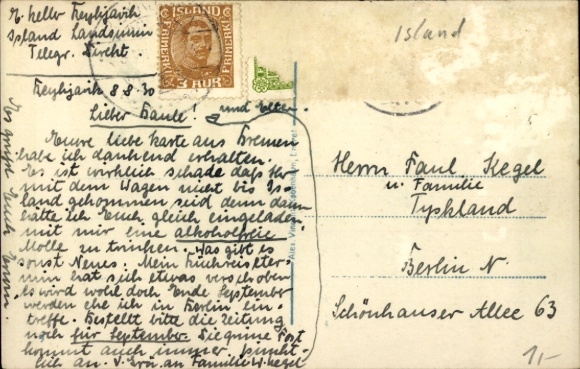 E. Keller Reykjavik
Island Landssimin
Telegr. Direkt.
ISLAND
FRIMERKI
FRIMERKI
3 AUR
Island
Reykjavik 8 8 30
Lieber Paule! und Eltern
Eure liebe Karte aus Bremen
habe ich dankend erhalten.
Es ist wirklich schade daß Ihr
mit dem Wagen nicht bis Is-
land gekommen seid denn dann
hätte ich Euch gleich eingeladen
mit mir eine alkoholfreie
Molle zu trinken. Was gibt es
sonst Neues. Mein Rückreiseter-
min hat sich etwas verschoben
es wird wohl doch Ende September
werden ehe ich in Berlin ein-
treffe. Bestellt bitte die Zeitung
noch für September. Die grüne Post
kommt auch immer pünkt-
lich an. an Familie W. Kegel
Es grüßt Euch
Herrn Paul Kegel
u. Familie
Tyskland
Berlin N.
Schönhauser Allee 63
1,-